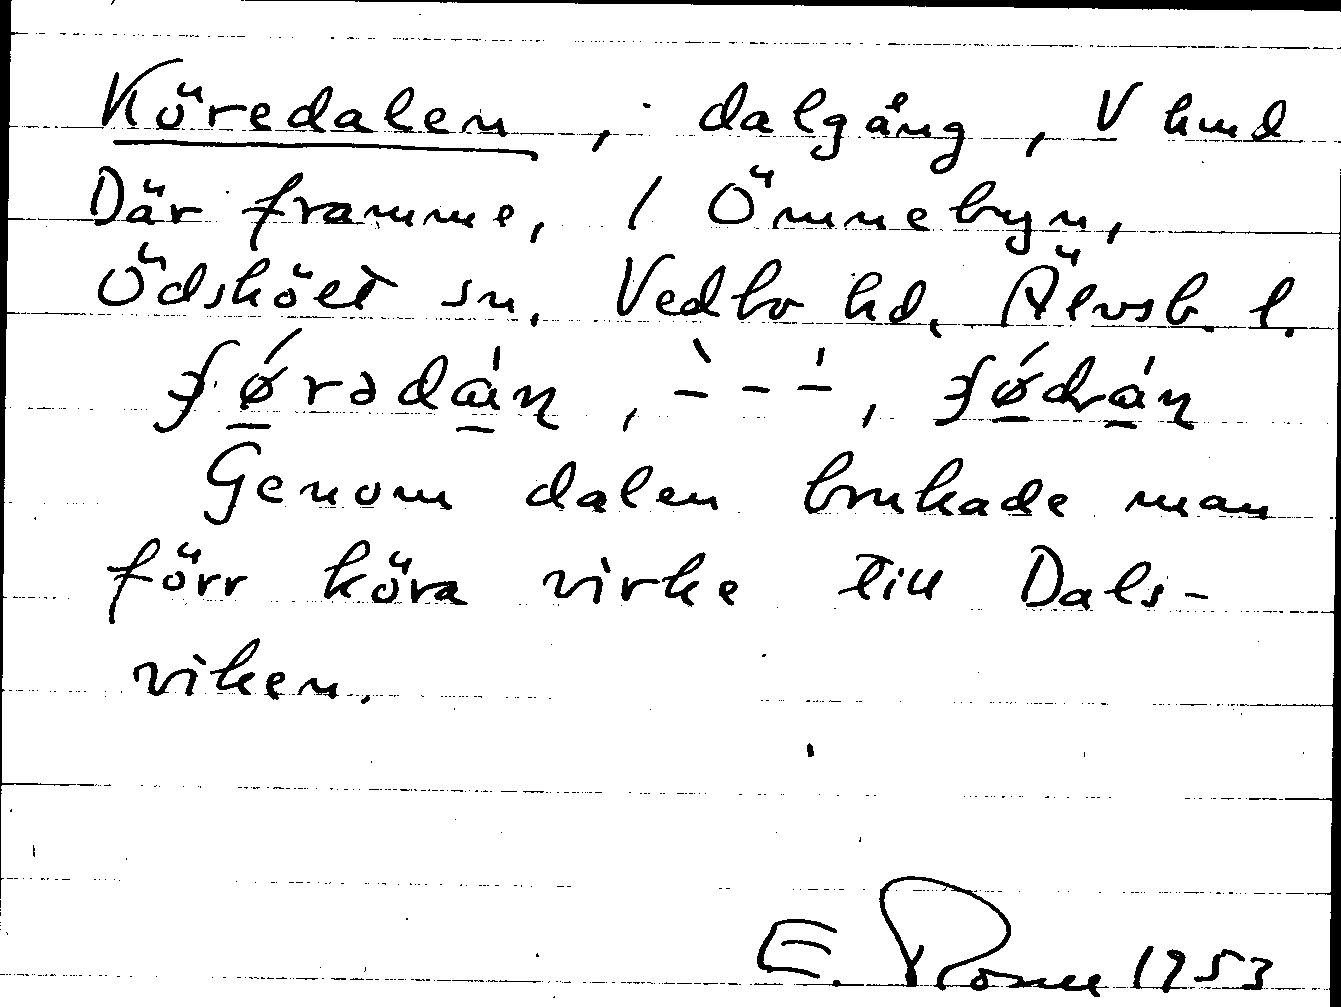 Köredalen, dalgång, V hmd
Där framme, / Ömnebyn,
Ödskölt sn, Vedbo hd, Älvsb. l.
Genom dalen brukade man
förr köra virke till Dals-
viken.
E. 1953